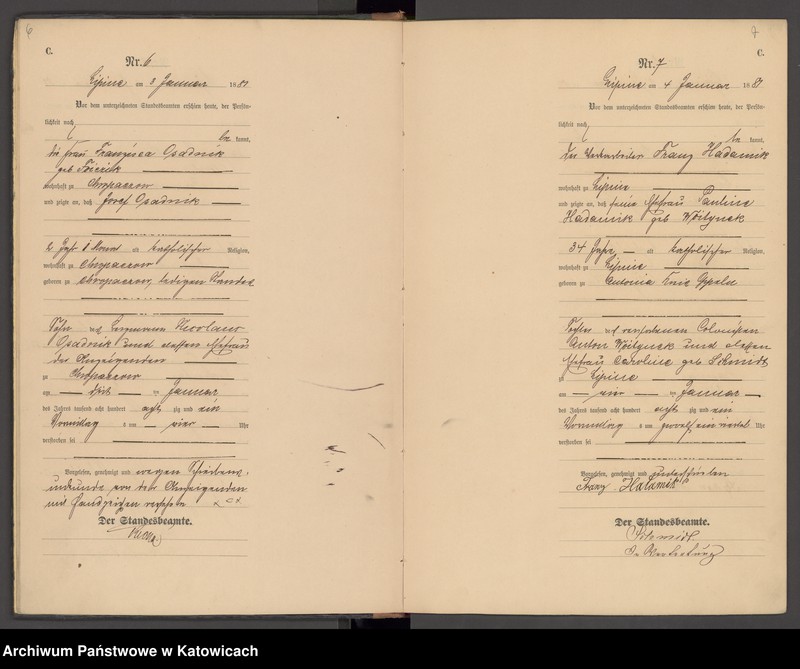 6
C.
Nr. 6
Lipine am 3 Januar 1881
Vor dem unterzeichneten Standesbeamten erschien heute, der Persön-
lichkeit nach
be kannt,
die Frau Franzisca Osadnik
geb
wohnhaft zu Chropaczow
und zeigte an, daß Josef Osadnik
2 Jahr Monat alt katholischer Religion,
wohnhaft zu Chropaczow
geboren zu Chropaczow, ledigen Standes
Sohn des Nicolaus
Osadnik und dessen Ehefrau
der Anzeigenden
zu Chropaczow
am Januar
des Jahres tausend acht hundert acht zig und ein
Vormittag s um vier Uhr
verstorben sei
Vorgelesen, genehmigt und wegen Schreibens-
unkunde von der Anzeigenden
mit Handzeichen versehen
Der Standesbeamte.
7
C.
Nr. 7
Lipine am 4 Januar 1881
Vor dem unterzeichneten Standesbeamten erschien heute, der Persön-
lichkeit nach
be kannt,
Der Franz Hadamik
wohnhaft zu Lipine
und zeigte an, daß seine Ehefrau Pauline
Hadamik geb Woitynek
34 Jahr alt katholischer Religion,
wohnhaft zu Lipine
geboren zu Antonia Kreis Oppeln
Tochter des verstorbenen
Anton Woitynek und dessen
Ehefrau Caroline geb Schmidt
zu Lipine
am vier Januar
des Jahres tausend acht hundert acht zig und ein
Vormittag s um zwoelf ein viertel Uhr
verstorben sei
Vorgelesen, genehmigt und unterschrieben
Franz Hadamik
Der Standesbeamte.
Schmidt
In Vertretung
Archiwum Państwowe w Katowicach